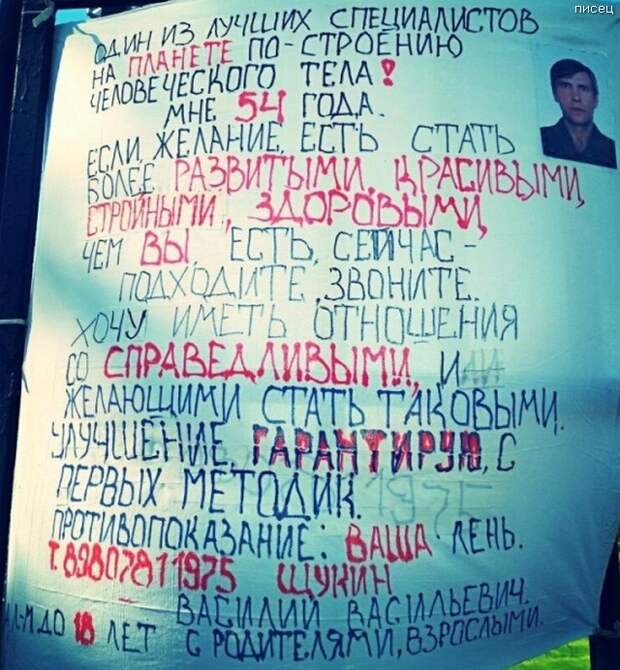 писец
ОДИН ИЗ ЛУЧШИХ СПЕЦИАЛИСТОВ
НА ПЛАНЕТЕ ПО-СТРОЕНИЮ
ЧЕЛОВЕЧЕСКОГО ТЕЛА!
МНЕ 54 ГОДА.
ЕСЛИ, ЖЕЛАНИЕ, ЕСТЬ СТАТЬ
БОЛЕЕ РАЗВИТЫМИ, КРАСИВЫМИ,
СТРОЙНЫМИ, ЗДОРОВЫМИ,
ЧЕМ ВЫ, ЕСТЬ, СЕЙЧАС -
ПОДХОДИТЕ, ЗВОНИТЕ.
ХОЧУ ИМЕТЬ ОТНОШЕНИЯ
СО СПРАВЕДЛИВЫМИ, И
ЖЕЛАЮЩИМИ СТАТЬ ТАКОВЫМИ.
УЛУЧШЕНИЕ, ГАРАНТИРУЮ, С
ПЕРВЫХ МЕТОДИК.
ПРОТИВОПОКАЗАНИЕ: ВАША ЛЕНЬ.
Т. 89807811975 ЩУКИН
ВАСИЛИЙ ВАСИЛЬЕВИЧ.
ДО 18 ЛЕТ С РОДИТЕЛЯМИ, ВЗРОСЛЫМИ.